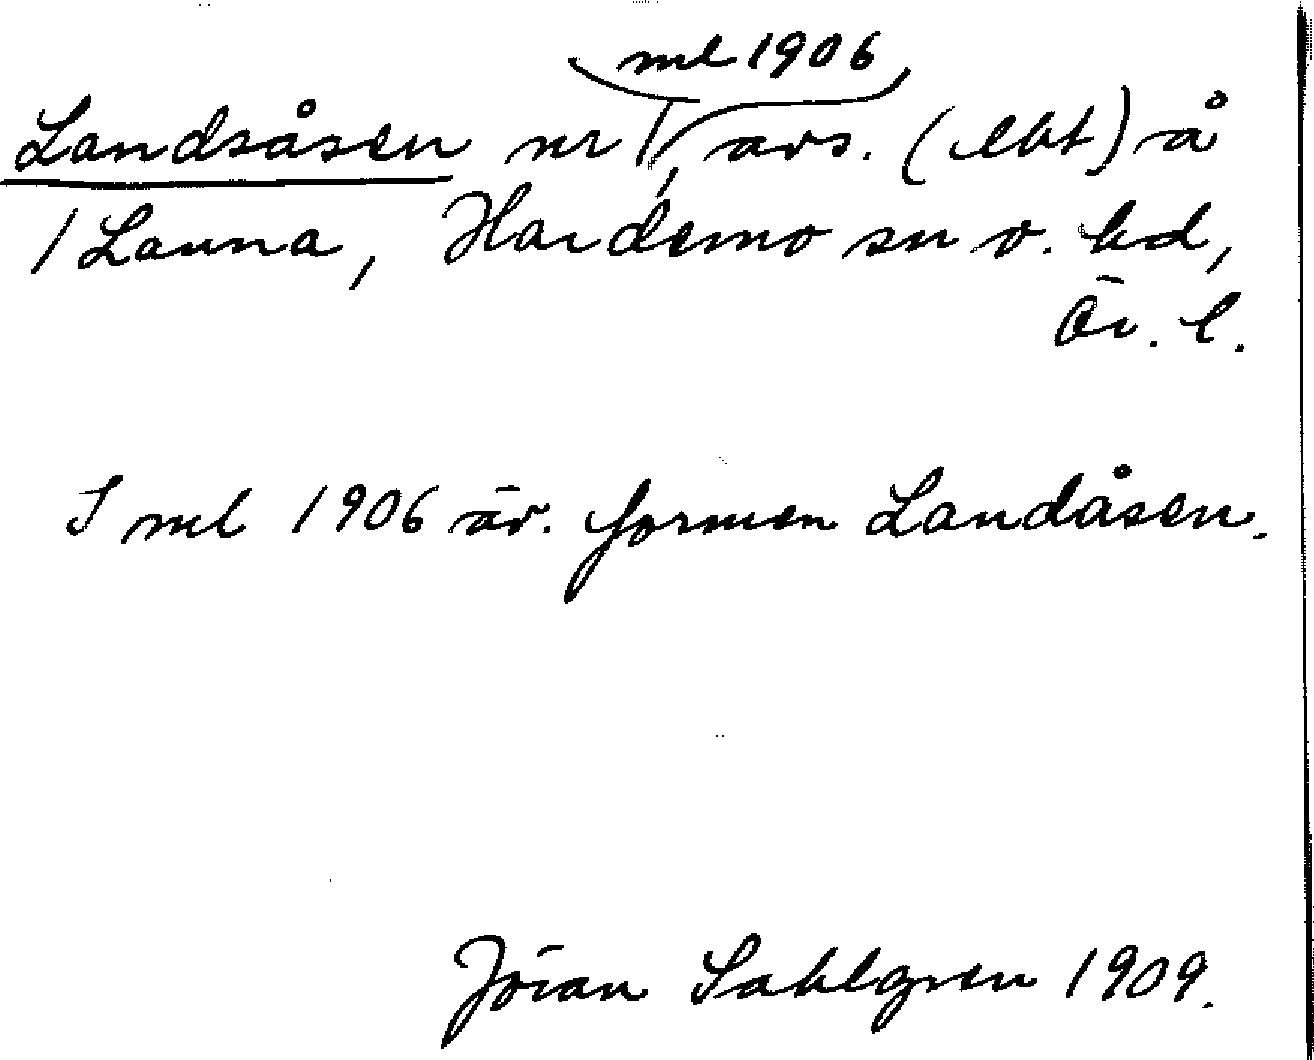 ml 1906
Landsåsen nr 1, avs. (lht) å
1 Lanna, Hardemo sn o. hd,
Ör. l.
I ml 1906 äv. formen Landåsen.
Jöran Sahlgren 1909.